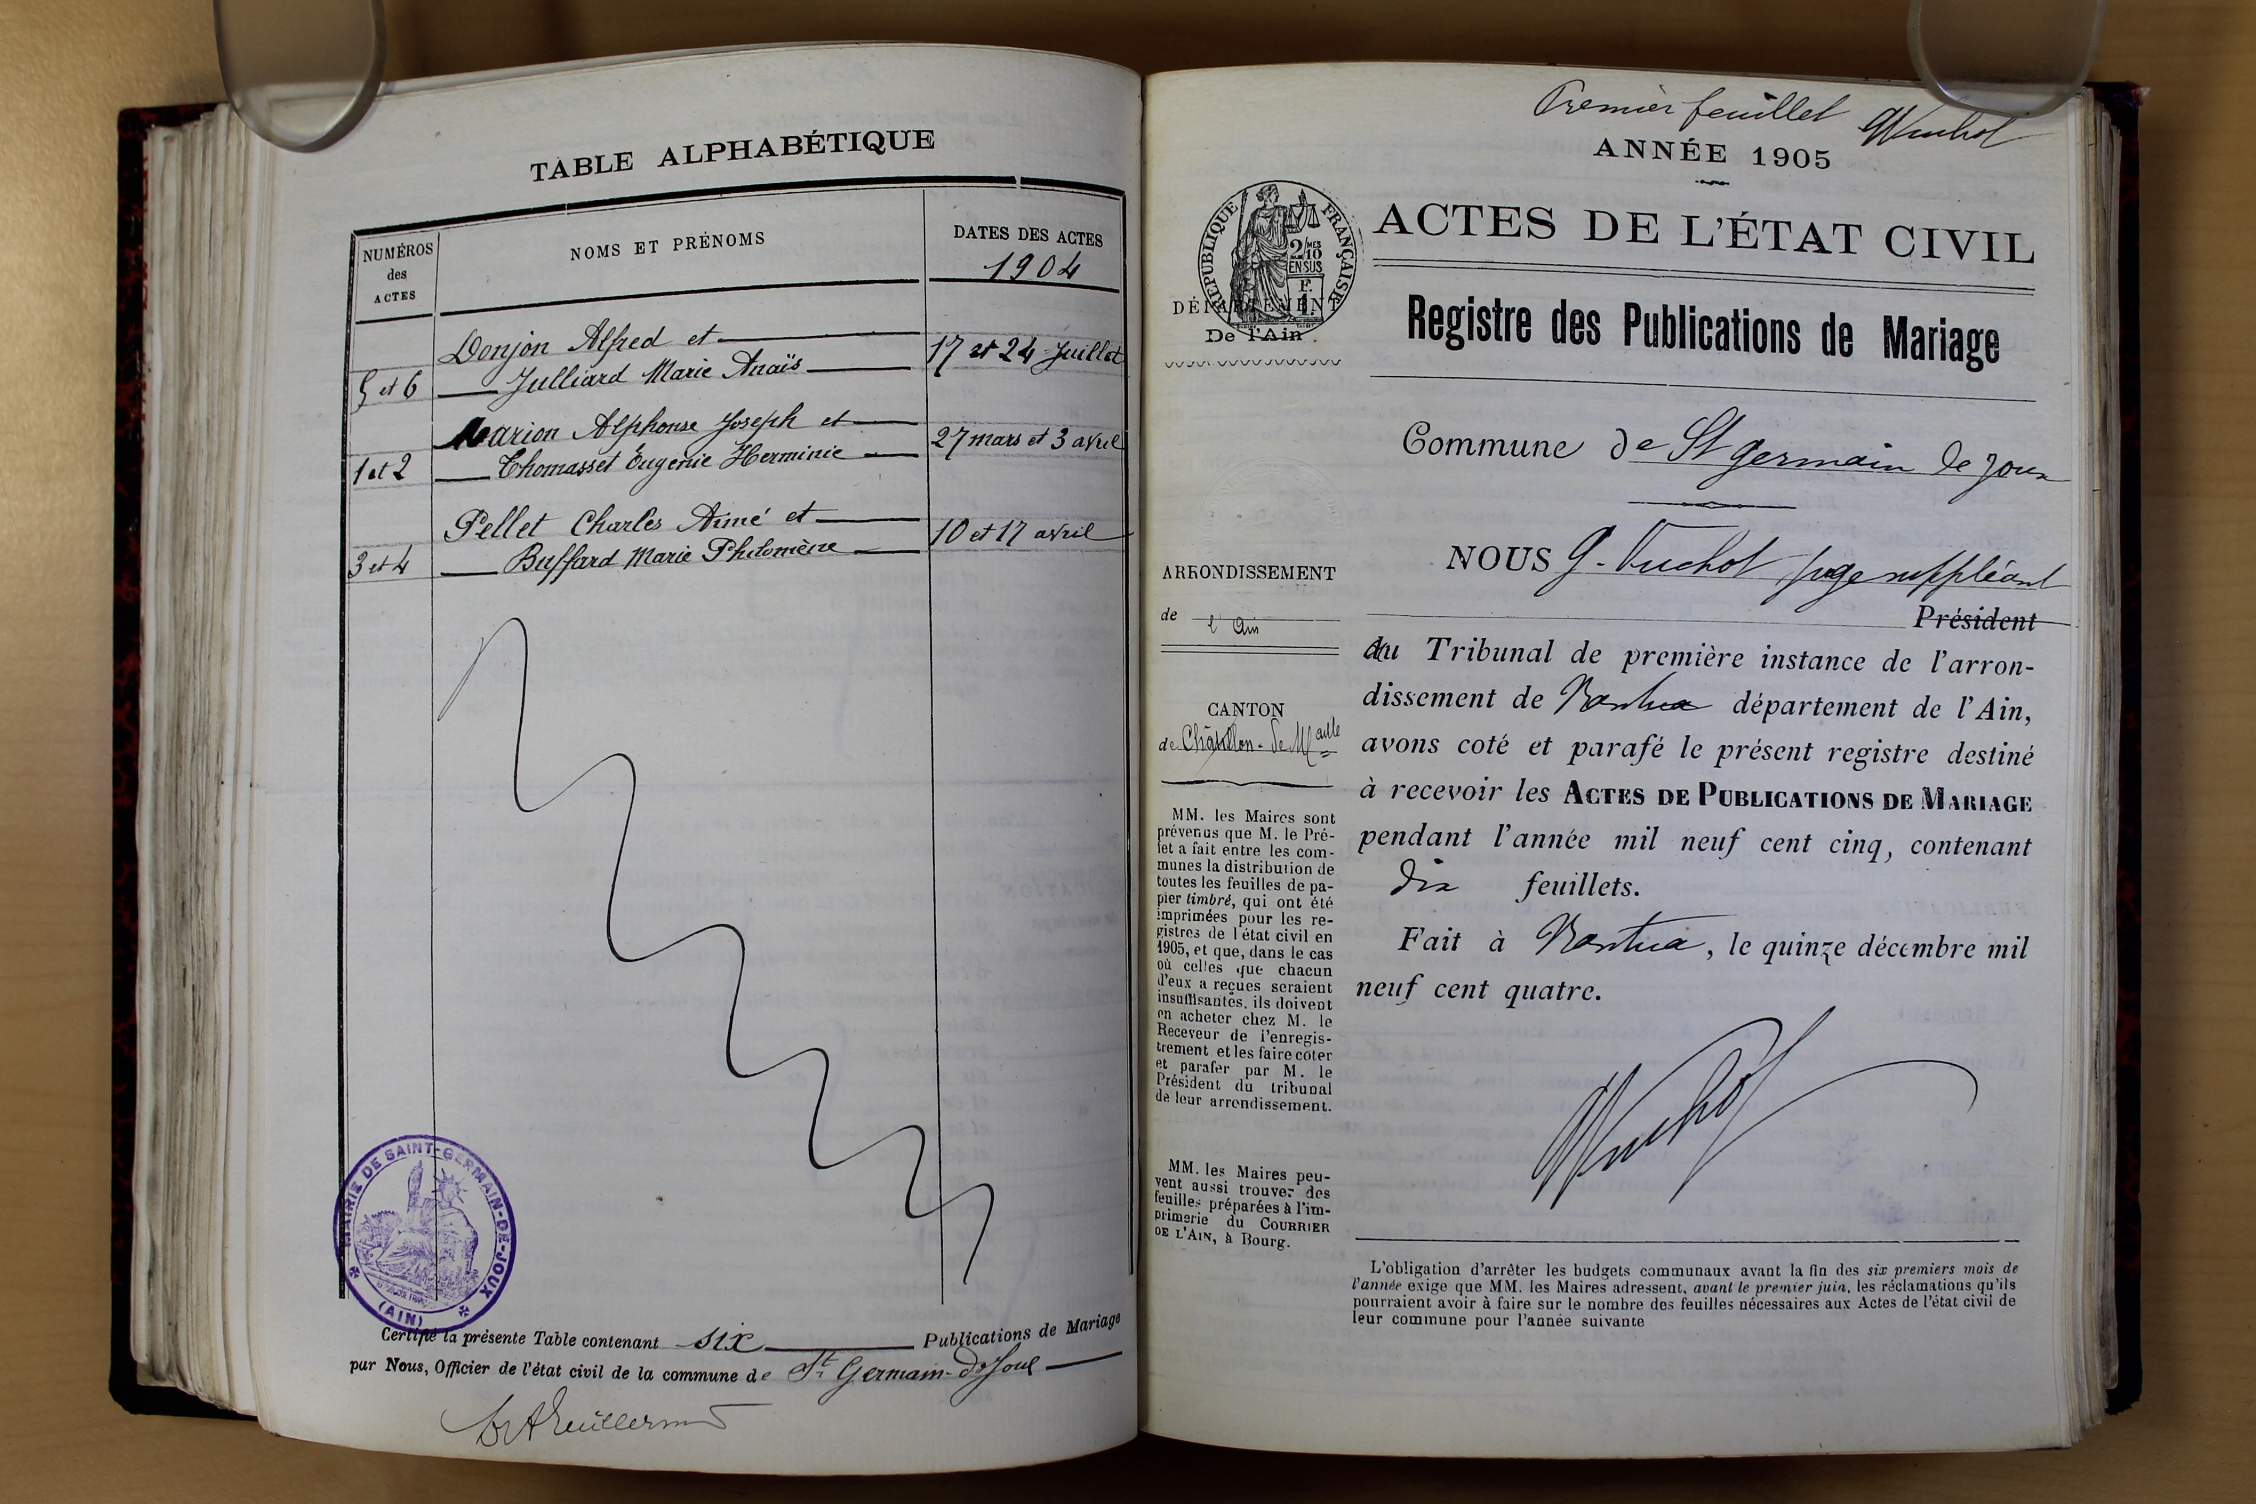 TABLE ALPHABÉTIQUE
NUMÉROS
des
ACTES
NOMS ET PRÉNOMS
DATES DES ACTES
1904
Donjon Alfred et
5 et 6 Julliard Marie Anaïs
17 et 24 Juillet
Marion Alphonse Joseph et
1 et 2 Thomasset Eugénie Herminie
27 mars et 3 avril
Pellet Charles Aimé et
3 et 4 Buffard Marie Philomène
10 et 17 avril
MAIRIE DE SAINT-GERMAIN-DE-JOUX
(AIN)
Certifié la présente Table contenant six Publications de Mariage
par Nous, Officier de l'état civil de la commune de St Germain-de-Joux
Premier feuillet Vuchot
ANNÉE 1905
ACTES DE L'ÉTAT CIVIL
RÉPUBLIQUE FRANÇAISE
2/10MES
EN SUS
DÉPARTEMENT
De l'Ain
Registre des Publications de Mariage
Commune de St germain de Joux
NOUS G. Vuchot juge suppléant
Président
au Tribunal de première instance de l'arron-
dissement de Nantua département de l'Ain,
avons coté et parafé le présent registre destiné
à recevoir les ACTES DE PUBLICATIONS DE MARIAGE
pendant l'année mil neuf cent cinq, contenant
dix feuillets.
Fait à Nantua, le quinze décembre mil
neuf cent quatre.
Vuchot
ARRONDISSEMENT
de l'Ain
CANTON
de Châtillon-de-Michaille
MM. les Maires sont
prévenus que M. le Pré-
fet a fait entre les com-
munes la distribution de
toutes les feuilles de pa-
pier timbré, qui ont été
imprimées pour les re-
gistres de l'état civil en
1905, et que, dans le cas
où celles que chacun
d'eux a reçues seraient
insuffisantes, ils doivent
en acheter chez M. le
Receveur de l'enregis-
trement et les faire coter
et parafer par M. le
Président du tribunal
de leur arrondissement.
MM. les Maires peu-
vent aussi trouver des
feuilles préparées à l'im-
primerie du COURRIER
DE L'AIN, à Bourg.
L'obligation d'arrêter les budgets communaux avant la fin des six premiers mois de
l'année exige que MM. les Maires adressent, avant le premier juin, les réclamations qu'ils
pourraient avoir à faire sur le nombre des feuilles nécessaires aux Actes de l'état civil de
leur commune pour l'année suivante